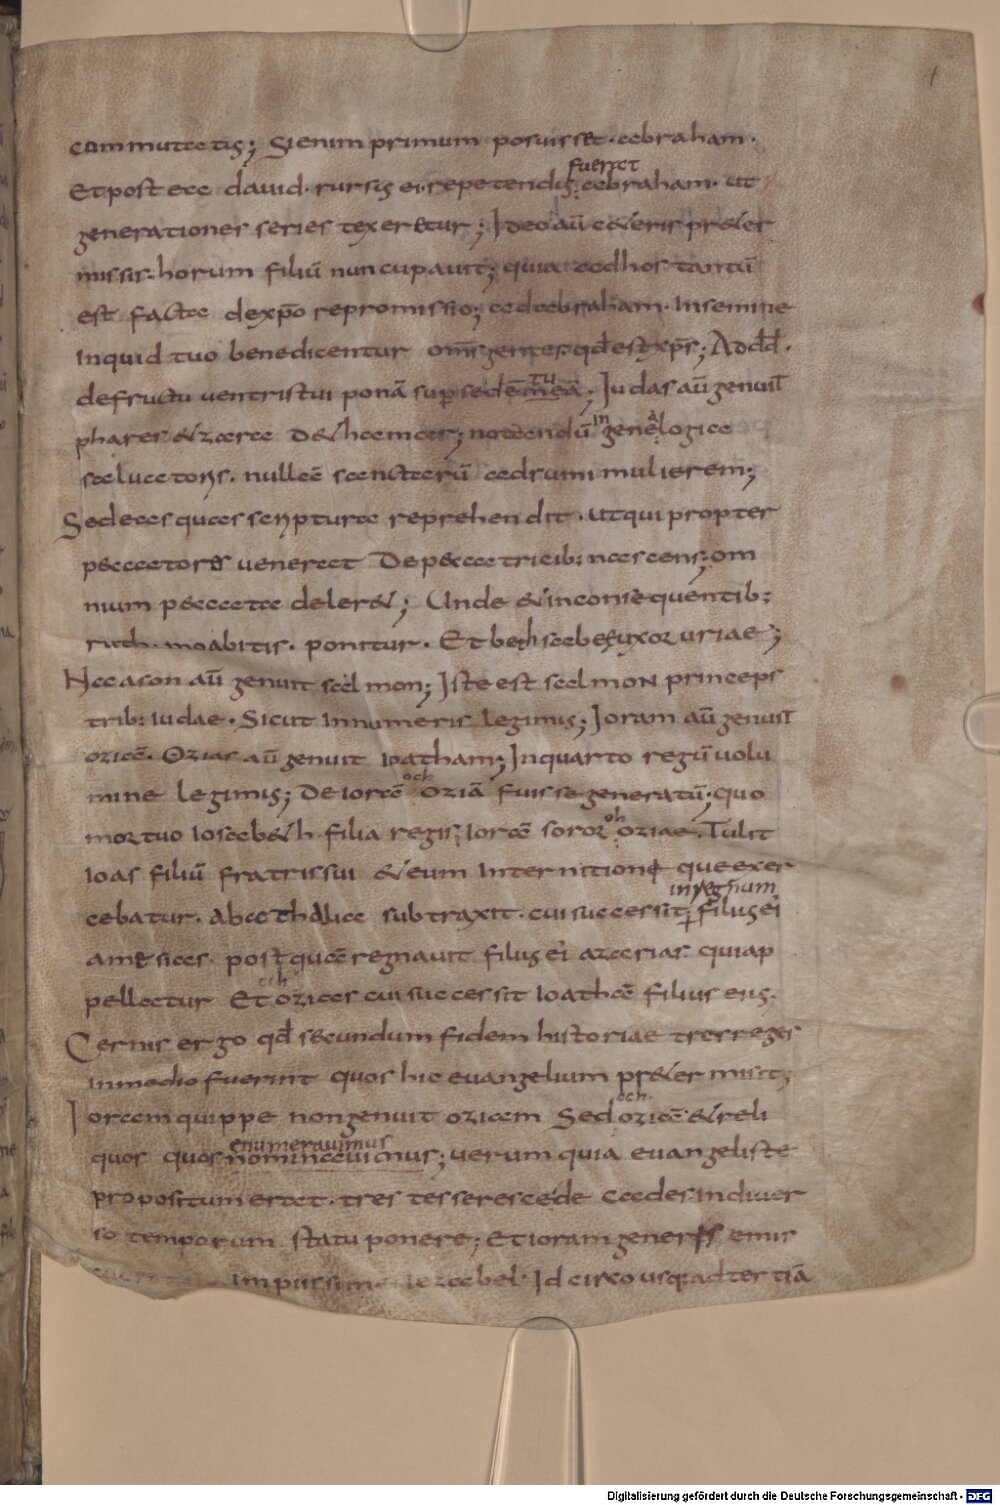 4
commutatis; Si enim primum posuisset abraham.
fuerat
Et postea dauid. rursus ei repetendus abraham. ut
generationes series texeretur; Ideo aū ceteris preter
missis. horum filiū nuncupauit; quia ad hos tantū
est facta de xp̄o repromissio; ad abraham. In semine
inquid tuo benedicentur om̄s gentes. qđ est xp̄s; Ad dđ.
tu
de fructu uentris tui ponā sup sedē meā; Iudas aū genuit
in
phares & zara de thamar; notandū genealogia
saluatoris. nullā sanctarū adsumi mulierem;
Sed eas quas scriptura reprehendit. ut qui propter
peccatores uenerat De peccatricib: nascens; om
nium peccata deleret; Unde & in consequentib:
ruth. moabitis. ponitur. Et bethsabe uxor uriae;
Naason aū genuit salmon; Iste est salmon princeps
trib: iudae. Sicut in numeris legimus; Ioram aū genuit
oziā. Ozias aū genuit ioatham; In quarto regū uolu
och
mine legimus; De iorā oziā fuisse generatū; quo
oh
mortuo iosabeth filia regis iorā soror oziae. Tulit
ioas filiū fratris sui & eum internitione que exer
in regnum
cebatur. ab athalia subtraxit. cui successit filius ei
amesias. post quē regnauit filius ei azarias. qui ap
och
pellatur Et ozias cui successit ioathā filius eius.
Cernis ergo qđ secundum fidem historiae tres reges
in medio fuerint quos hic euangelium pretermisit;
och
Ioram quippe non genuit oziam Sed oziā & reli
enumerauimus
quos quos nominauimus; uerum quia euangelistae
propositum erat. tres tesserescedecades. In diuer
so temporum statu ponere; Et ioram generis emis
impiissime iezabel. Idcirco usq: ad tertiā
Digitalisierung gefördert durch die Deutsche Forschungsgemeinschaft - DFG